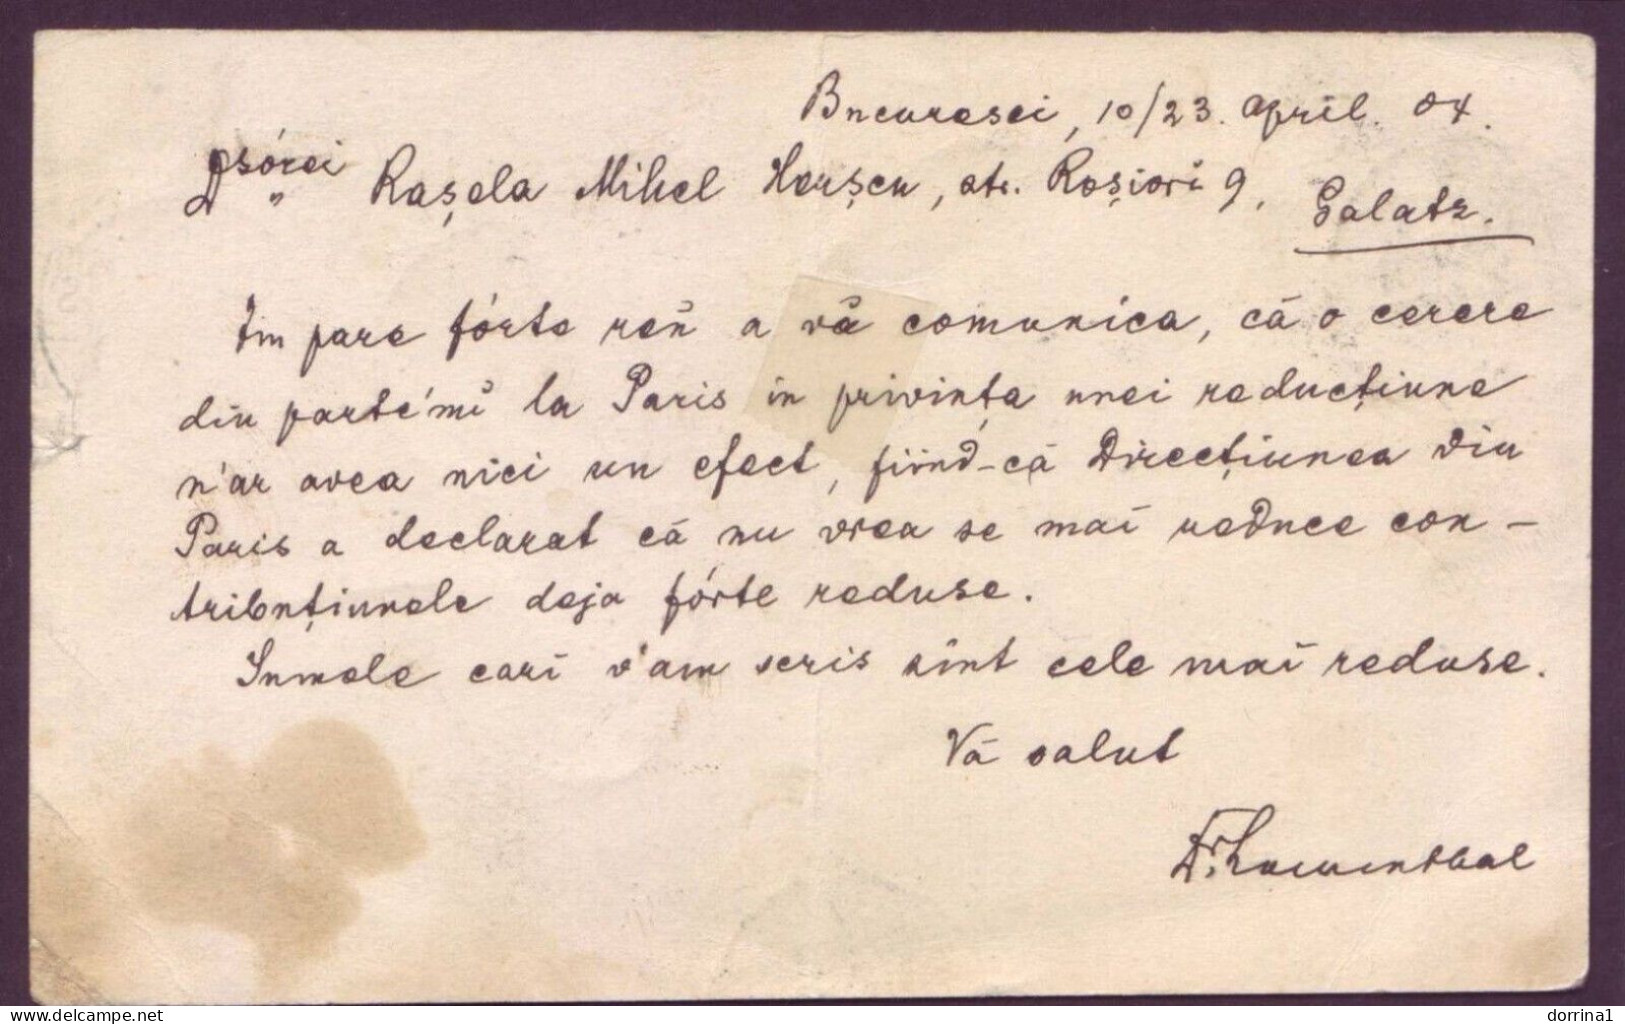 Bucuresci, 10/23. April. 04.
Dsórei
" Rașela Mihel Herșcu, str. Roșiori 9, Galatz.
Îm pare fórte rĕŭ a vă comunica, că o cerere
din parte'mĭ la Paris în privința unei reducțiune
n'ar avea nici un efect, fiind-că Direcțiunea din
Paris a declarat că nu vrea se mai reduce con-
tribuțiunele deja fórte reduse.
Sumele cari v'am scris sînt cele mai reduse.
Vă salut
Dr.
delcampe.net
dorrina1